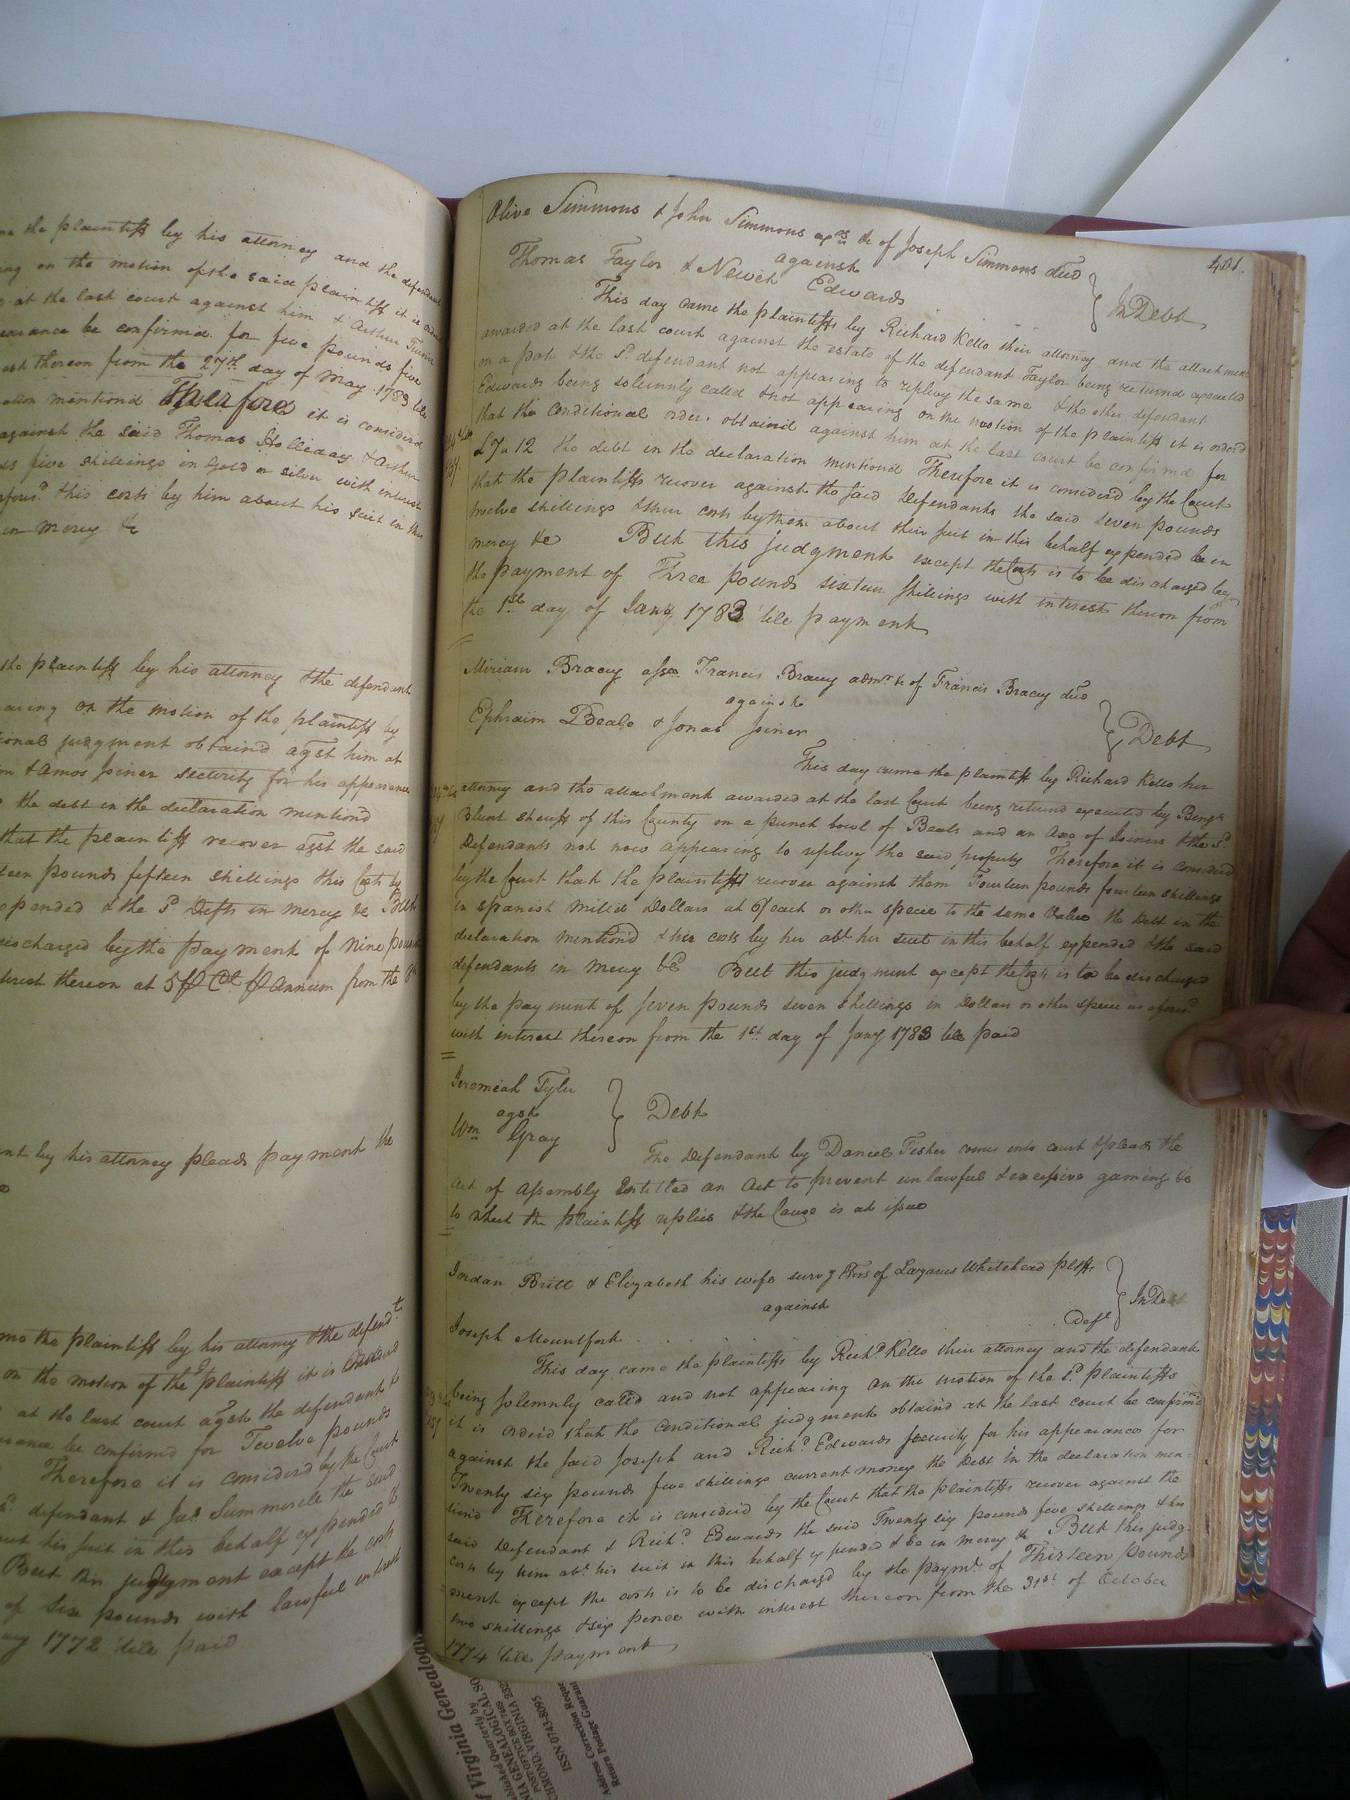 me the plaintiff by his attorney and the defendant
ing on the motion of the said plaintiff it is
at the last court against him & Arthur Turner
earance be confirmd for five pounds five
est thereon from the 27th day of May 1783 till
ation mentiond Therefore it is considerd
against the said Thomas Holliday & Arthur
ds five shillings in Gold or silver with interest
this costs by him about his suit in this
in mercy &c
the plaintiff by his attorney & the defendant
earing on the motion of the plaintiff by
ional judgment obtaind agst him at
& Amos Joiner security for his appearance
the debt in the declaration mentiond
that the plaintiff recover agst the said
teen pounds fifteen shillings & his Costs by
xpended & the Sd Defts in mercy &c But
discharged by the payment of Nine pounds
terest thereon at 5 Ct Annum from the
nt by his attorney pleads payment the
me the plaintiff by his attorney & the defendt
on the motion of the plaintiff it is considerd
at the last court agst the defendant &
earance be confirmd for Twelve pounds
Therefore it is considerd by the Court
defendant & Jas Summerell the said
out his suit in this behalf expended &
But this judgment except the costs
of six pounds with lawful interest
1772 till paid
401.
Olive Simmons & John Simmons exrs &c of Joseph Simmons decd
against
Thomas Taylor & Newit Edwards
In Debt
This day came the plaintiffs by Richard Kello their attorney and the attachment
awarded at the last court against the estate of the defendant Taylor being returnd executed
on a pot & the Sd defendant not appearing to replevy the same & the other defendant
Edwards being solemnly called & not appearing on the motion of the plaintiffs it is orderd
that the conditional order obtaind against him at the last court be confirmd for
£7..12 the debt in the declaration mentiond Therefore it is considerd by the Court
that the plaintiffs recover against the said Defendants the said seven pounds
twelve shillings & their costs by them about their suit in this behalf expended & be in
mercy &c But this judgment except the Costs is to be discharged by
the payment of Three pounds sixteen shillings with interest thereon from
the 1st day of Jany 1783 till payment
Miriam Bracey assee Francis Bracey admr &c of Francis Bracey decd
against
Ephraim Beale & Jonas Joiner
Debt
This day came the plaintiff by Richard Kello her
attorney and the attachment awarded at the last Court being returnd executed by Benja
Blunt sheriff of this County on a punch bowl of Beals and an Axe of Joiners & the Sd
Defendants not now appearing to replevy the said property Therefore it is considerd
by the Court that the plaintiff recover against them Fourteen pounds fourteen shillings
in spanish milld Dollars at 6/ each or other specie to the same value the Debt in the
declaration mentiond & her costs by her abt her suit in this behalf expended & the said
defendants in mercy &c But this judgment except the Costs is to be discharged
by the payment of seven pounds seven shillings in Dollars or other specie as aforesd
with interest thereon from the 1st day of Jany 1783 till paid
Jeremiah Tyler
agst
Wm Gray
Debt
The Defendant by Daniel Fisher comes into court & pleads the
act of Assembly Entitled an Act to prevent unlawful & excessive gaming &c
to which the plaintiff replies & the Cause is at issue
Jordan Britt & Elizabeth his wife survg Exrs of Lazarus Whitehead pltfs
against
Joseph Mountfort Deft
In Debt
This day came the plaintiffs by Richd Kello their attorney and the defendant
being solemnly calld and not appearing on the motion of the Sd plaintiffs
it is orderd that the conditional judgment obtaind at the last court be confirmd
against the said Joseph and Richd Edwards security for his appearance for
Twenty six pounds five shillings current money the Debt in the declaration men-
tiond Therefore it is considerd by the Court that the plaintiffs recover against the
said Defendant & Richd Edwards the said Twenty six pounds five shillings & his
costs by him abt his suit in this behalf expended & be in mercy &c But this judg-
ment except the costs is to be discharged by the paymt of Thirteen pounds
two shillings & six pence with interest thereon from the 31st of October
1774 till payment
Virginia Genealogical
Published Quarterly by
VIRGINIA GENEALOGICAL SO
POST OFFICE BOX 7469
RICHMOND, VIRGINIA 232
ISSN 0743-8095
Address Correction Reque
Return Postage Guarant